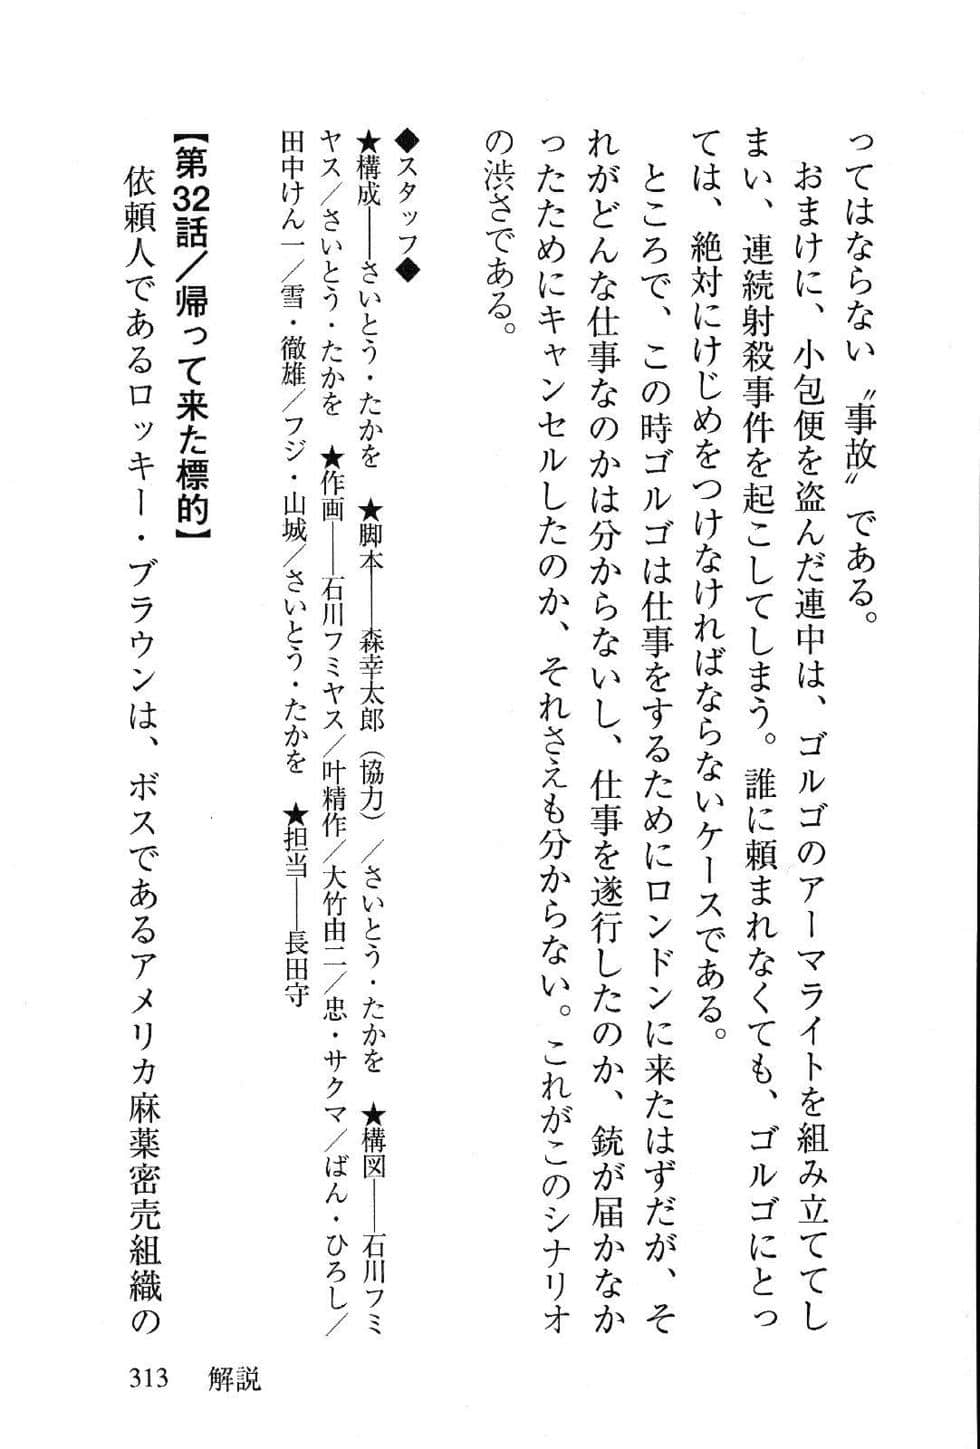 ってはならない〝事故〟である。
　おまけに、小包便を盗んだ連中は、ゴルゴのアーマライトを組み立ててし
まい、連続射殺事件を起こしてしまう。誰に頼まれなくても、ゴルゴにとっ
ては、絶対にけじめをつけなければならないケースである。
　ところで、この時ゴルゴは仕事をするためにロンドンに来たはずだが、そ
れがどんな仕事なのかは分からないし、仕事を遂行したのか、銃が届かなか
ったためにキャンセルしたのか、それさえも分からない。これがこのシナリオ
の渋さである。
◆スタッフ◆
★構成――さいとう・たかを　★脚本――森幸太郎（協力）／さいとう・たかを　★構図――石川フミ
ヤス／さいとう・たかを　★作画――石川フミヤス／叶精作／大竹由二／忠・サクマ／ばん・ひろし／
田中けん一／雪・徹雄／フジ・山城／さいとう・たかを　★担当――長田守
【第32話／帰って来た標的】
　依頼人であるロッキー・ブラウンは、ボスであるアメリカ麻薬密売組織の
313　解説